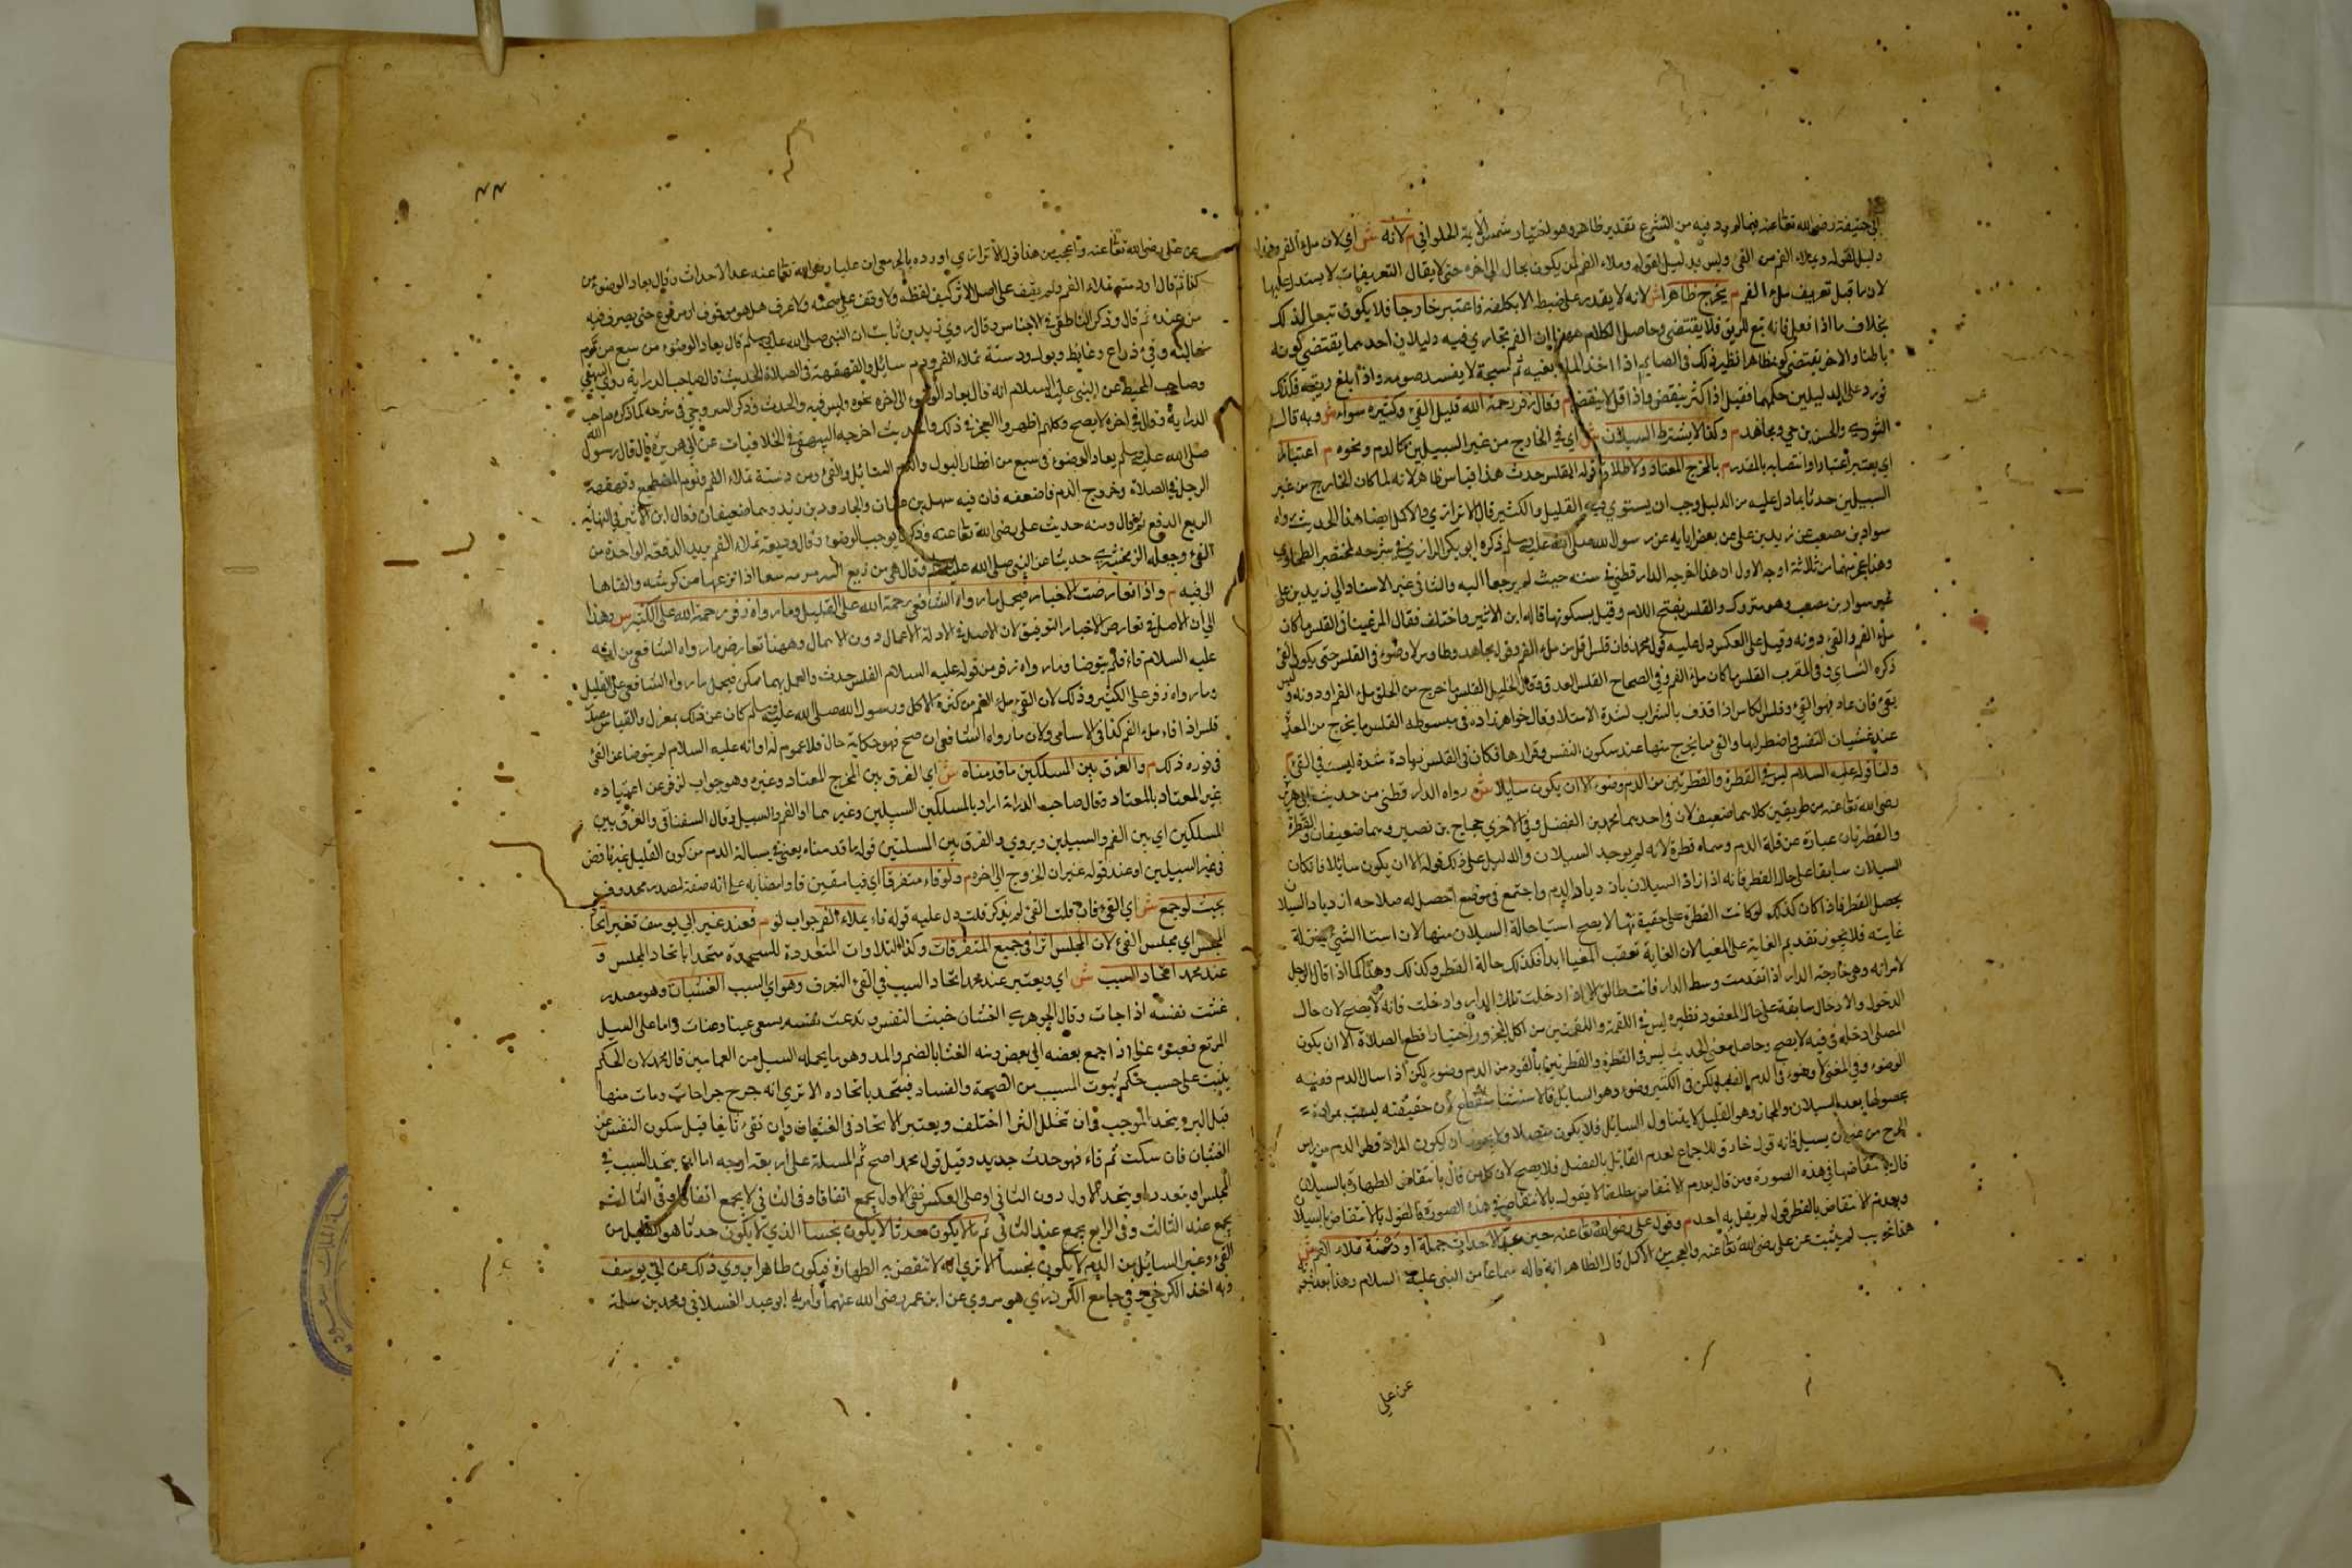 أبي حنيفة رضي الله تعا عنه فيما لم يرد فيه من الشرع تقدير ظاهر وهو اختيار شمس الأئمة الحلواني م لانه ش أي لان ملء الفم وهذا
دليل لقوله وبملاء الفم من القئ وليس بدليل لقوله وملاء الفم أن يكون بحال الى اخره حتى لا يقال التعريفات لا يستدل عليها
لان ما قبل تعريف ملء الفم م يخرج ظاهرا ش لانه لا يقدر على ضبطه الا بكلفة فاعتبر خارجا فلا يكون تبعا لذلك
بخلاف ما اذا فعل فانه تبع للريق فلا ينتقض وحاصل الكلام ههنا ان الفم تجاري فيه دليلان احدهما يقتضي كونه
باطنا والاخر يقتضي كونه ظاهرا نظير ذلك في الصايم اذا اخذ الماء بفيه ثم مجه لا يفسد صومه واذا ابلغ ريقه فكذلك
فورد على الدليلين حكمهما فقيل اذا كثر ينقض واذا قل لا ينقض م وقال زفر رحمه الله قليل القئ وكثيره سواء ش وبه قال
الثوري والحسن بن حي ومجاهد م وكذا لا يشترط السيلان ش أي في الخارج من غير السبيلين كالدم ونحوه م اعتبارا
اي يعتبر اعتبارا وانتصابه بالمقدر م بالمخرج المعتاد ولاطلاق قوله القلس حدث هذا قياس ظاهر لانه لما كان الخارج من غير
السبيلين حدثا بما دل عليه من الدليل وجب ان يستوي فيه القليل والكثير قال الاترازي والاكمل ايضا هذا الحديث رواه
سوار بن مصعب عن زيد بن علي عن بعض ابايه عن رسول الله صلى الله عليه وسلم ذكره ابو بكر الرازي في شرحه لمختصر الطحاوي
وهذا عجز منهما من ثلاثة اوجه الاول ان هذا اخرجه الدارقطني في سننه حيث لم يرجعا اليه والثاني غير الاسناد الي زيد بن علي
غير سوار بن مصعب وهو متروك والقلس بفتح اللام وقيل بسكونها قاله ابن الاثير واختلف فقال المرغيناني القلس ما كان
ملء الفم والقئ دونه وقيل على العكس دل عليه قول محمد فان قلس اقل من ملء الفم وقول مجاهد وطاوس لا وضوء في القلس حتى يكون القئ
ذكره النساي وفي المغرب القلس ما كان ملء الفم وفي الصحاح القلس القذف وقال الخليل القلس ما خرج من الحلق ملء الفم او دونه وليس
بقئ فان عاد فهو القئ وقلس الكاس اذا قذف بالشراب لشدة الامتلا وقال خواهر زاده في مبسوطه القلس ما يخرج من المعدة
عند غشيان النفس واضطرابها والقئ ما يخرج منها عند سكون النفس وقرارها فكان في القلس زيادة شدة ليست في القئ م
ولنا قوله عليه السلام ليس في القطرة والقطرتين من الدم وضوء الا ان يكون سايلا ش رواه الدارقطني من حديث ابي هريرة
رضي الله تعا عنه من طريقين كلاهما ضعيف لان في احدهما محمد بن الفضل وفي الاخري حجاج بن نصير وهما ضعيفان والقطرة
والقطرتان عبارة عن قلة الدم وسماه قطرة لانه لم يوجد السيلان والدليل على ذلك قوله الا ان يكون سائلا فاذا كان
السيلان سابقا على حال القطر فانه اذا زاد السيلان بازدياد الدم واجتمع في موضع احصل له صلاحه ازدياد السيلان
يحصل القطر فاذا كان كذلك لو كانت القطرة على حقيقتها لا يصح استحالة السيلان منها لان استثنا الشئ بمنزلة
غايته فلا يجوز تقديم الغاية على المغيا لان الغاية تعقب المغيا ابدا فكذلك حالة القطر وكذلك وهذا كما اذا قال الرجل
لامراته وهي خارجة الدار اذا تقدمت وسط الدار فانت طالق الا اذا دخلت تلك الدار وادخلت فانه لا يصح لان حال
الدخول والادخال سابقة على حال المعقود نظيره ليس في اللقمة واللقمتين من اكل الخبز واختيار اقطع الصلاة الا ان يكون
المصلي ادخله في فيه لا يصح وحاصل معنى الحديث ليس في القطرة والقطرتين بالقوة من الدم وضوء لكن اذا سال الدم ففيه
الوضوء وفي المغني لا وضوء في الدم القليل ولكن في الكثير وضوء وهو السايل فالاستثنا منقطع لان حقيقته ليست بمرادة
حصولها بعد السيلان والمجاز وهو القليل لا يتناول السائل فلا يكون متصلا ولا يجوز ان يكون المراد قطر الدم من راس
الجرح من غير ان يسيل فانه قول خارق للاجماع لعدم القائل بالفصل فلا يصح لان كل من قال بانتقاض الطهارة بالسيلان
قال بانتقاضها في هذه الصورة ومن قال بعدم الانتقاض مطلقا لا يقول بالانتقاض في هذه الصورة فالقول بالانتقاض بالسيلان
وبعدم الانتقاض بالقطر قول لم يقل به احد م وقول علي رضي الله تعا عنه حين عد الاحداث جملة او دسعة تملاء الفم ش
هذا غريب لم يثبت عن علي رضي الله تعا عنه والعجب من الاكمل قال الظاهر انه قاله سماعا من النبي عليه السلام وهذا بعد ثبوته
عن علي
٤٤
عن علي رضي الله تعا عنه واعجب من هذا قول الاترازي اورده بالجر معران عليا رضي الله تعا عنه عد الاحداث وقال يعاد الوضوء من
كذا ثم قال او دسعة تملاء الفم ولم يقف على اصل الاثر كيف لفظه ولا وقف على صحته ولا عرف هل هو موقوف او مرفوع حتى يصرف فيه
من عنده ثم قال وذكر الناطفي في الاجناس وقال روي زيد بن ثابت ان النبي صلى الله عليه وسلم قال يعاد الوضوء من سبع من نوم
غالبته وقئ ذراع وغايط وبول ودسعة تملاء الفم ودم سائل والقهقهة في الصلاة الحديث قال صاحب الدراية روي البيهقي
وصاحب المحيط عن النبي عليه السلام انه قال يعاد الوضوء الى اخره نحوه وليس فيه والحدث وذكر السروجي في شرحه كما ذكره صاحب
الدراية وقال في اخره لا يصح وكلهم اظهروا العجز في ذلك والحديث اخرجه البيهقي في الخلافيات عن ابي هريرة قال قال رسول الله
صلى الله عليه وسلم يعاد الوضوء في سبع من اقطار البول والدم السائل والقئ ومن دسعة تملاء الفم ونوم المضطجع وقهقهة
الرجل في الصلاة وخروج الدم فاضعفه فان فيه سهل بن عفان والجارود بن زيد وهما ضعيفان وقال ابن الاثير في النهاية
الربع الدفع ثم قال ومنه حديث علي رضي الله تعا عنه وذكر ما يوجب الوضوء وقال دسعة تملاء الفم يريد الدفعة الواحدة من
القئ وجعله الزمخشري حديثا عن النبي صلى الله عليه وسلم وقال هي من دسع البعير بجرته دسعا اذا نزعها من كرشه والقاها
الى فيه م واذا تعارضت الاخبار فيحمل ما رواه الشافعي رحمه الله على القليل وما رواه زفر رحمه الله على الكثير ش وهذا
الى ان الاصل في تعارض الاخبار التوفيق لان الاصل في الادلة الاعمال دون الاهمال وههنا تعارض ما رواه الشافعي من انه
عليه السلام قاء فلم يتوضا وما رواه زفر من قوله عليه السلام القلس حدث والعمل بهما ممكن فيحمل ما رواه الشافعي على القليل
وما رواه زفر على الكثير وذلك لان القئ ملء الفم من كثرة الاكل ورسول الله صلى الله عليه وسلم كان عن ذلك بمعزل والقياس
قلس اذا قاء ملء الفم كذا في الاسامي ولان ما رواه الشافعي ان صح فهو حكاية حال فلا عموم له او انه عليه السلام لم يتوضا عن القئ
في فوره ذلك م والفرق بين المسلكين ما قدمناه ش اي الفرق بين المخرج المعتاد وغيره وهو جواب لزفر عن اعتباره
غير المعتاد بالمعتاد وقال صاحب الدراية اراد بالمسلكين السبيلين وغيرهما او الفم والسبيل وقال السغناقي والفرق بين
المسلكين اي بين الفم والسبيلين ويروي والفرق بين المسئلتين قوله ما قدمناه يعني في مسالة الدم من كون القليل غير ناقض
في غير السبيلين او عند قوله غير ان الخروج الى اخره م ولو قاء متفرقا اي قيا متفرقين قا وانتصابه على انه صفة لمصدر محذوف
بحيث لو جمع ش اي القئ فان قلت القئ لم يذكر قلت دل عليه قوله قاء يملاء الفم جواب لو م فعند غير ابي يوسف تعتبر اتحاد
المجلس اي مجلس القئ لان المجلس اثرا في جميع المتفرقات وكذا التلاوات المتعددة للسجدة متحدا باتحاد المجلس و
عند محمد اتحاد السبب ش اي ويعتبر عند محمد اتحاد السبب في القئ المتفرق وهو اي السبب الغشيان وهو مصدر
غشت نفسه اذا جاشت وقال الجوهري الغثيان خبث النفس وقد غثت نفسه يسعى غيثا وغثيانا واما على السيل
المرتع فعيثوه غثوا اذا جمع بعضه الي بعض ومنه الغثا بالضم والمد وهو ما يحمله السيل من القماش قال محمد لان الحكم
يثبت على حسب حكم ثبوت السبب من الصحة والفساد فيتحد باتحاده الا تري انه جرح جراحات ومات منها
قبل البرء يتحد الموجب وان تخلل البرا اختلف ويعتبر الاتحاد في الغثيان وان تقئ ثانيا قبل سكون النفس عن
الغثيان فان سكت ثم قاء فهو حدث جديد وقيل قول محمد اصح ثم المسئلة على اربعة اوجه اما ان يتحد السبب في
المجلس او يتعدد او يتحد الاول دون الثاني او على العكس ففي الاول يجمع اتفاقا وفي الثاني لا يجمع اتفاقا وفي الثالث
يجمع عند الثالث وفي الرابع يجمع عند الثاني ثم ما لا يكون حدثا لا يكون نجسا الذي لا يكون حدثا هو القليل من
القئ وغير السائل من الدم لا يكون نجسا الا تري انه لا تنقض به الطهارة فيكون طاهرا يروي ذلك عن ابي يوسف
وبه اخذ الكرخي وفي جامع الكردري هو مروي عن ابن عمر رضي الله عنهما وامر له ابو عبد الله القلانسي ومحمد بن سلمة